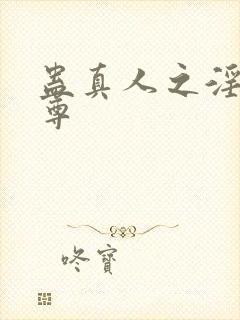 蛊真人之淫
尊
咚寶